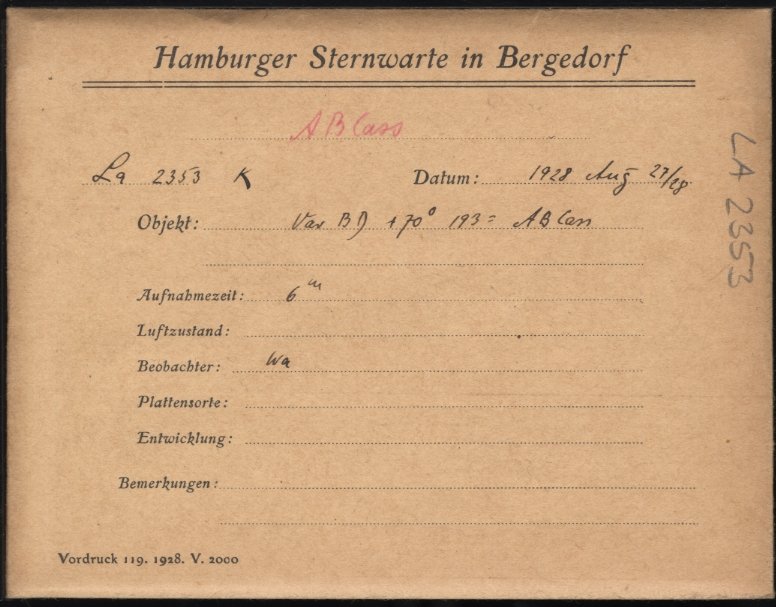 Hamburger Sternwarte in Bergedorf
AB Cass
La 2353 K Datum: 1928 Aug 27/28
Objekt: Var BD +70° 193 = AB Cass
Aufnahmezeit: 6 m
Luftzustand:
Beobachter: Wa
Plattensorte:
Entwicklung:
Bemerkungen:
Vordruck 119. 1928. V. 2000
LA 2353